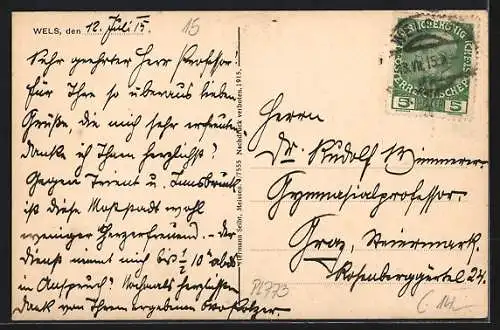 WELS, den 12. Juli 15.
15
Sehr geehrter Herr Professor!
Für Ihre so überaus lieben
Grüße die mich sehr erfreuten
danke ich Ihnen herzlichst!
Gegen Trient u. Innsbruck
ist diese Meßstadt wohl
weniger herzerfreuend. – Der
Dienst nimmt mich bis ½ 10h abds
in Anspruch! Nochmals herzlichsten
Dank von Ihrem ergebenen
Hermann Seibt, Meissen. Nachdruck verboten. 1915.
Herrn
Dr. Rudolf Wimmerer
Gymnasialprofessor
Graz, Steiermark.
Rosenberggürtel 24.
5 5
PL773